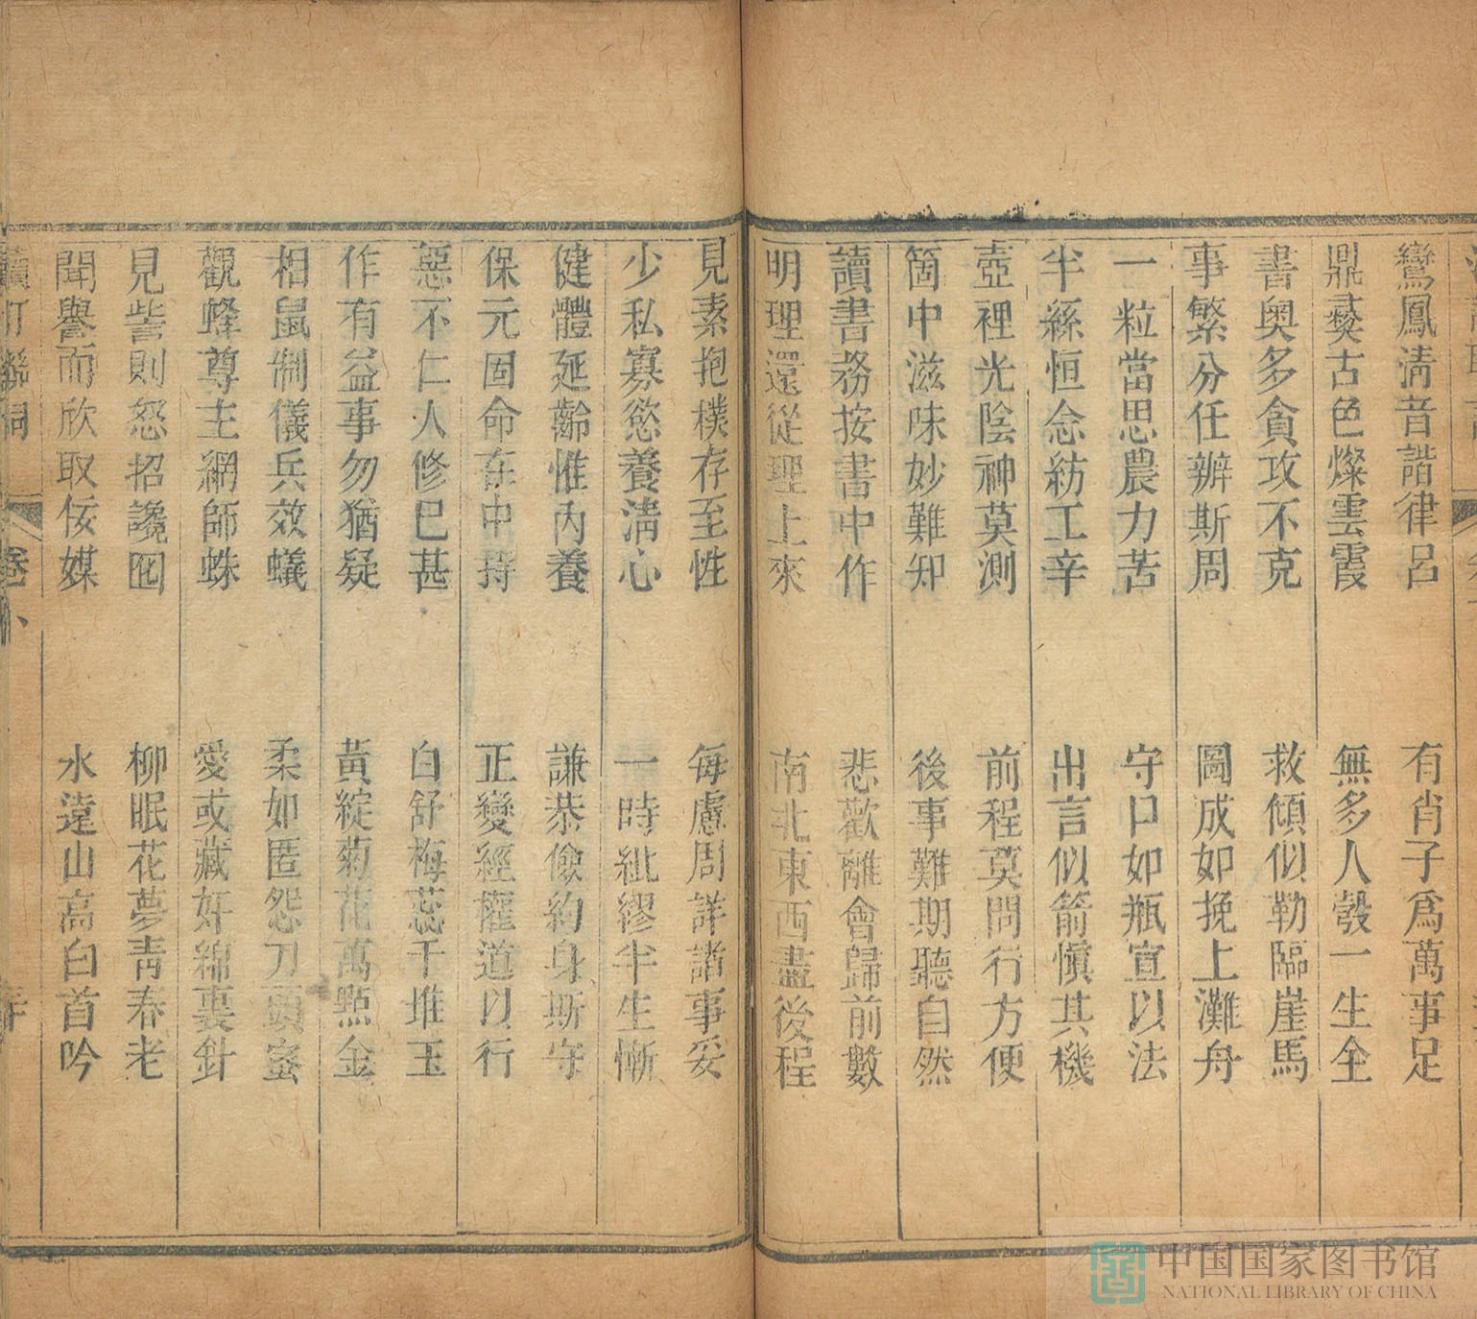 鸞鳳淸音諧律呂　有肖子爲萬事足
鼎彞古色燦雲霞　無多人彀一生全
書奧多貪攻不克　救傾似勒臨崖馬
事繁分任辦斯周　圖成如挽上灘舟
一粒當思農力苦　守口如瓶宣以法
半絲恒念紡工辛　出言似箭愼其機
壺裡光陰神莫測　前程莫問行方便
箇中滋味妙難知　後事難期聽自然
讀書務按書中作　悲歡離會歸前數
明理還從理上來　南北東西盡後程
見素抱樸存至性　每慮周詳諸事妥
少私寡慾養淸心　一時紕繆半生慚
健體延齡惟內養　謙恭儉約身斯守
保元固命在中持　正變經權道以行
惡不仁人修已甚　白舒梅蕊千堆玉
作有益事勿猶疑　黃綻菊花萬點金
相鼠制儀兵效蟻　柔如匿怨刀頭蜜
觀蜂尊主網師蛛　愛或藏奸綿裏針
見訾則怒招讒囮　柳眠花夢靑春老
聞譽而欣取佞媒　水遠山高白首吟
中国国家图书馆
NATIONAL LIBRARY OF CHINA